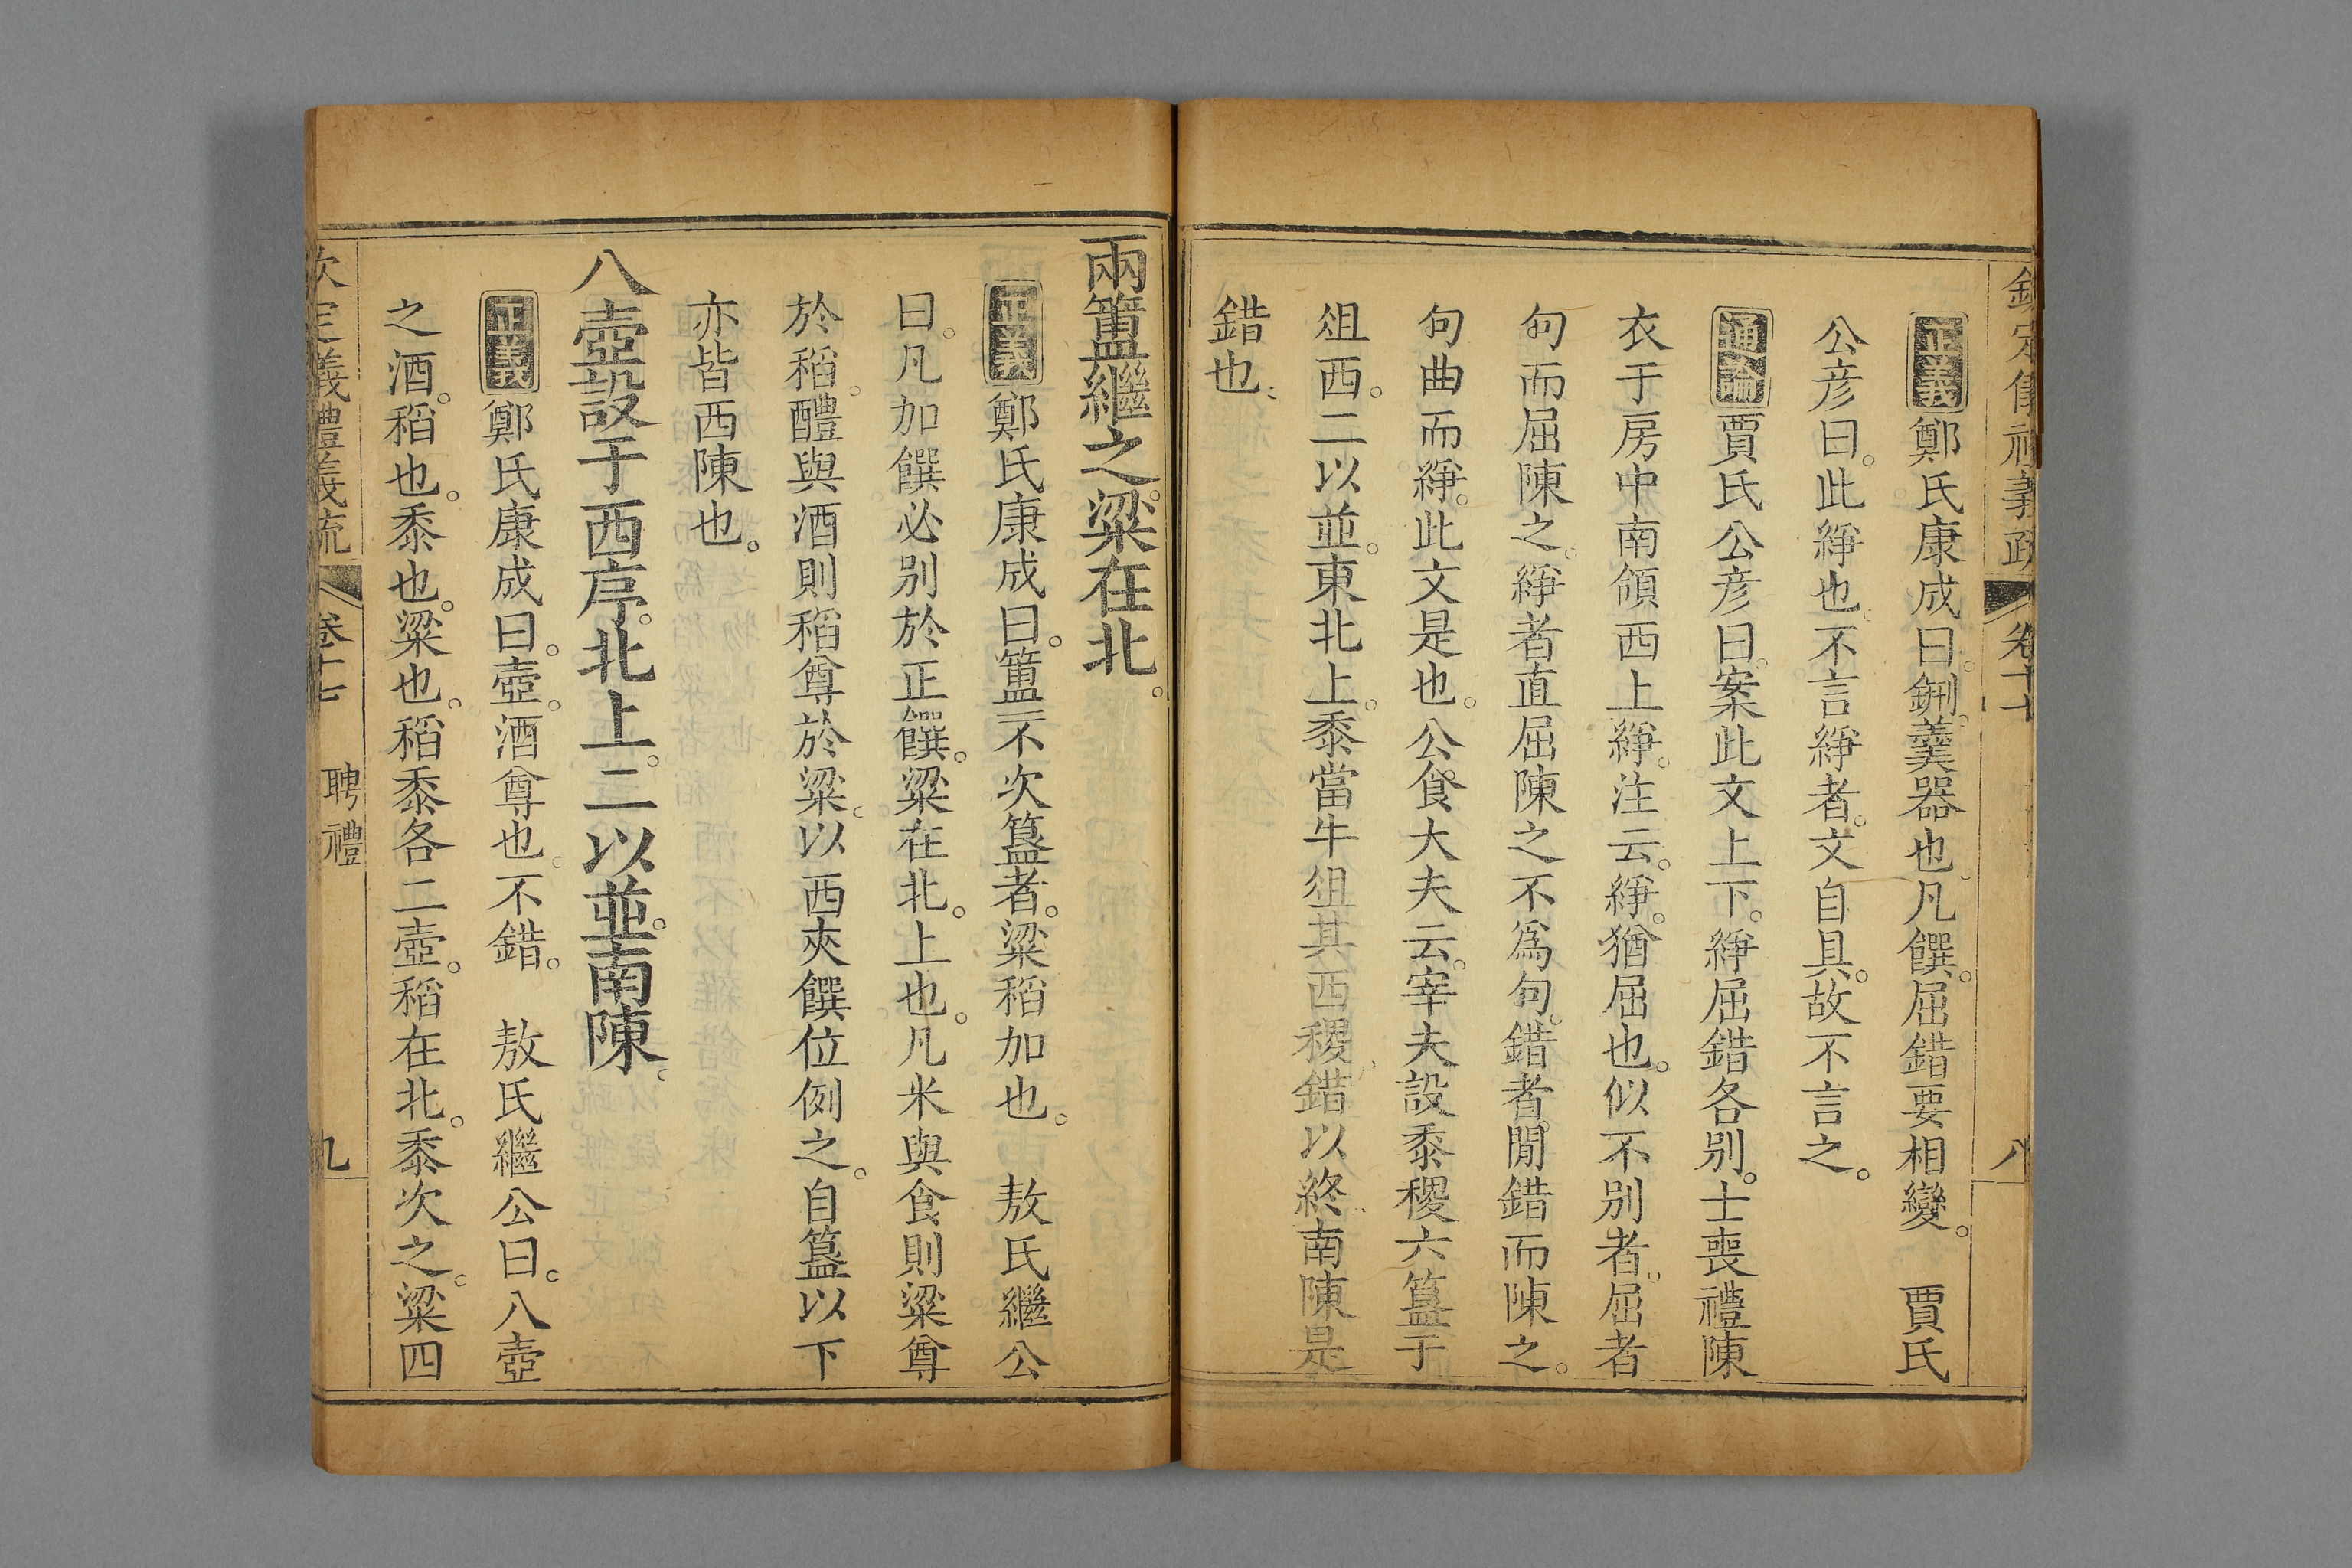 欽定儀禮義疏 卷十七 八
正義鄭氏康成曰。鉶。羹器也。凡饌。屈錯要相變。 賈氏
公彦曰。此綪也。不言綪者。文自具。故不言之。
通論賈氏公彦曰。案此文上下。綪屈錯各别。士喪禮陳
衣于房中南領西上綪。注云。綪。猶屈也。似不别者。屈者
句而屈陳之。綪者直屈陳之不爲句。錯者。閒錯而陳之。
句曲而綪。此文是也。公食大夫云。宰夫設黍稷六簋于
俎西。二以並。東北上。黍當牛俎其西稷。錯以終南陳是
錯也。
兩簠繼之。粱在北。
正義鄭氏康成曰。簠不次簋者。粱稻加也。 敖氏繼公
曰。凡加饌必别於正饌。粱在北。上也。凡米與食則粱尊
於稻。醴與酒則稻尊於粱。以西夾饌位例之。自簋以下
亦皆西陳也。
八壺設于西序。北上。二以並。南陳。
正義鄭氏康成曰。壺。酒尊也。不錯。 敖氏繼公曰。八壺
之酒。稻也。黍也。粱也。稻黍各二壺。稻在北。黍次之。粱四
欽定義禮義疏 卷十七 聘禮 九